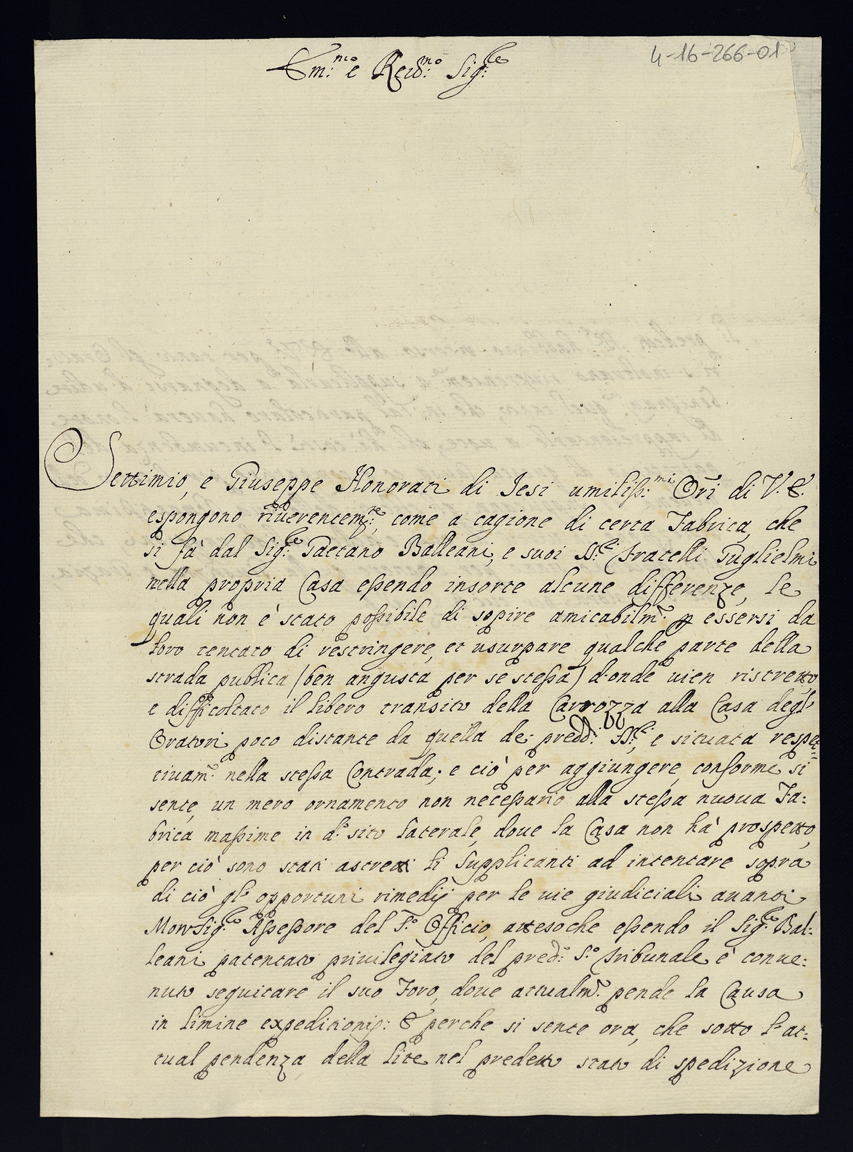 4-16-266-01
Em:nco e Reud:mo Sig:re
Settimio, e Giuseppe Honorati di Jesi umiliss:mi Ori di V. E.
espongono riuerentem:te, come a cagione di certa Fabrica, che
si fà dal Sig:re Gaetano Balleani, e suoi SS:ri fratelli Guglielmi
nella propria Casa essendo insorte alcune differenze, le
quali non e' stato possibile di sopire amicabilm:te p essersi da
loro tentato di restringere, et usurpare qualche parte della
strada publica (ben angusta per se stessa) d'onde uien ristretto
e difficoltato il libero transito della Carrozza alla Casa degl'
Oratori poco distante da quella de predd:i SS:ri, e situata respet=
tiuam:te nella stessa Contrada; e ciò per aggiungere, conforme si
sente, un mero ornamento non necessario alla stessa nuoua Fa:
brica massime in d:o sito laterale, doue la Casa non hà prospetto,
per ciò sono stati astretti li Supplicanti ad intentare sopra
di ciò gl'opportuni rimedij per le uie giudiciali auanti
Monsig:re Assessore del S:o Officio, attesoche essendo il Sig:re Bal:
leani patentato priuilegiato del pred:o S:o Tribunale è conue:
nuto seguitare il suo Foro, doue attualm:te pende la Causa
in limine expeditionis: E perche si sente ora, che sotto l'at:
tual pendenza della lite nel predetto stato di spedizione